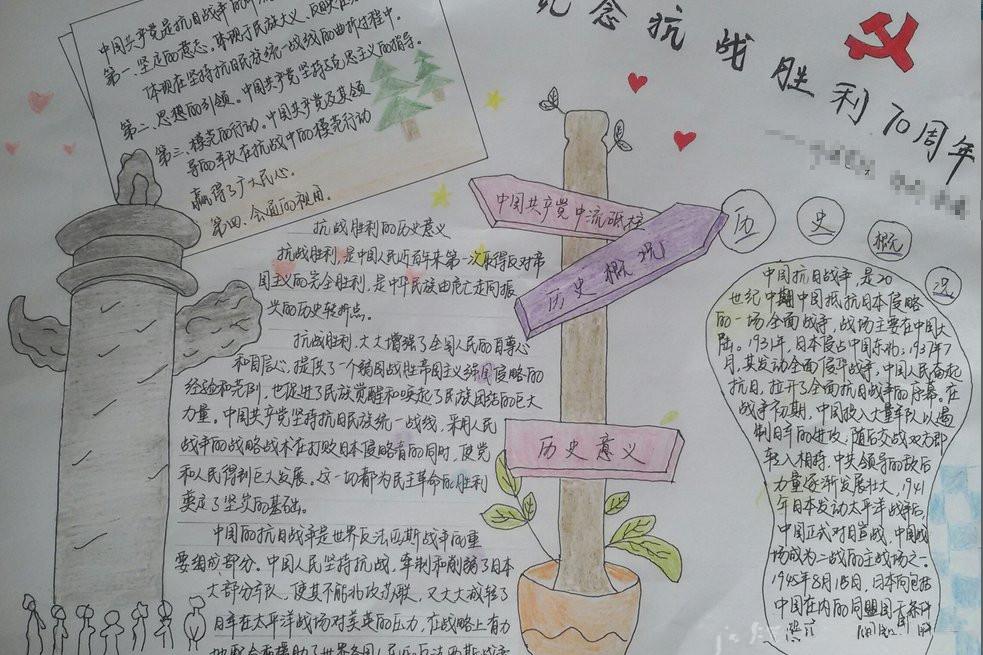 纪念抗战胜利70周年
中国共产党是抗日战争的中
第一、坚定的意志。体现于民族大义
体现在坚持抗日民族统一战线的曲折过程中。
第二、思想的引领。中国共产党坚持马克思主义的指导。
第三、模范的行动。中国共产党及其领
导的军队在抗战中的模范行动
赢得了广大民心。
第四、合适的视角。
抗战胜利的历史意义
抗战胜利,是中国人民近百年来第一次取得反对帝
国主义的完全胜利,是中华民族由危亡走向振
兴的历史转折点。
抗战胜利,大大增强了全国人民的自尊心
和自信心,提供了一个弱国战胜帝国主义强国侵略的
经验和先例,也促进了民族觉醒和唤起了民族团结的巨大
力量。中国共产党坚持抗日民族统一战线,采用人民
战争的战略战术在打败日本侵略者的同时,使党
和人民得到巨大发展。这一切都为民主革命的胜利
奠定了坚实的基础。
中国的抗日战争是世界反法西斯战争的重
要组成部分。中国人民坚持抗战,牵制和削弱了日本
大部分军队,使其不能北攻苏联,又大大减轻了
日军在太平洋战场对美英的压力,在战略上有力
地配合和援助了世界各国人民的反法西斯战争
中国共产党中流砥柱
历史概况
历史意义
历史概况
中国抗日战争,是20
世纪中期中国抵抗日本侵略
的一场全面战争,战场主要在中国大
陆。1931年,日本侵占中国东北;1937年7
月,其发动全面侵华战争,中国人民奋起
抗日,拉开了全面抗日战争的序幕。在
战争初期,中国投入大量军队以遏
制日军的进攻,随后交战双方即
转入相持,中共领导的敌后
力量逐渐发展壮大,1941
年日本发动太平洋战争后,
中国正式对日宣战,中国战
场成为二战的主战场之一。
1945年8月15日,日本向包括
中国在内的同盟国无条件